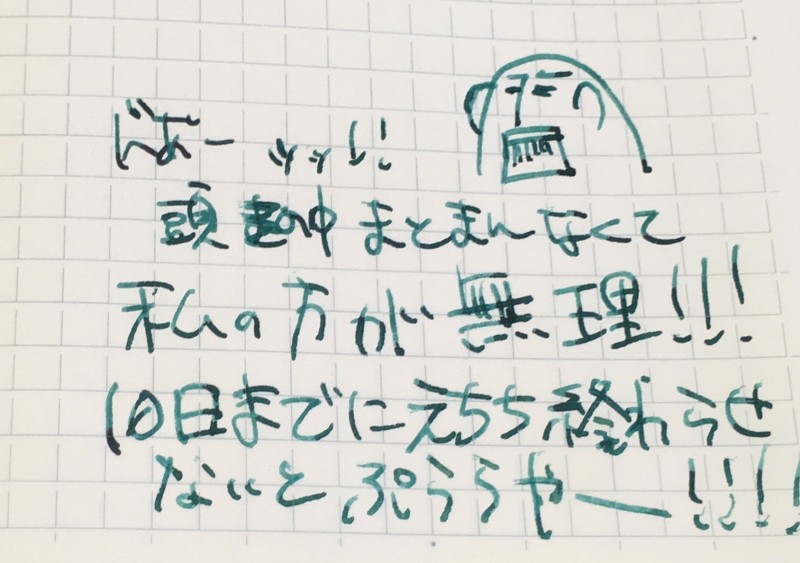 ばぁーッッ!!
頭の中まとまんなくて
私の方が無理!!!
10日までにえちち終わらせ
ないとぷぅぅやー!!!!